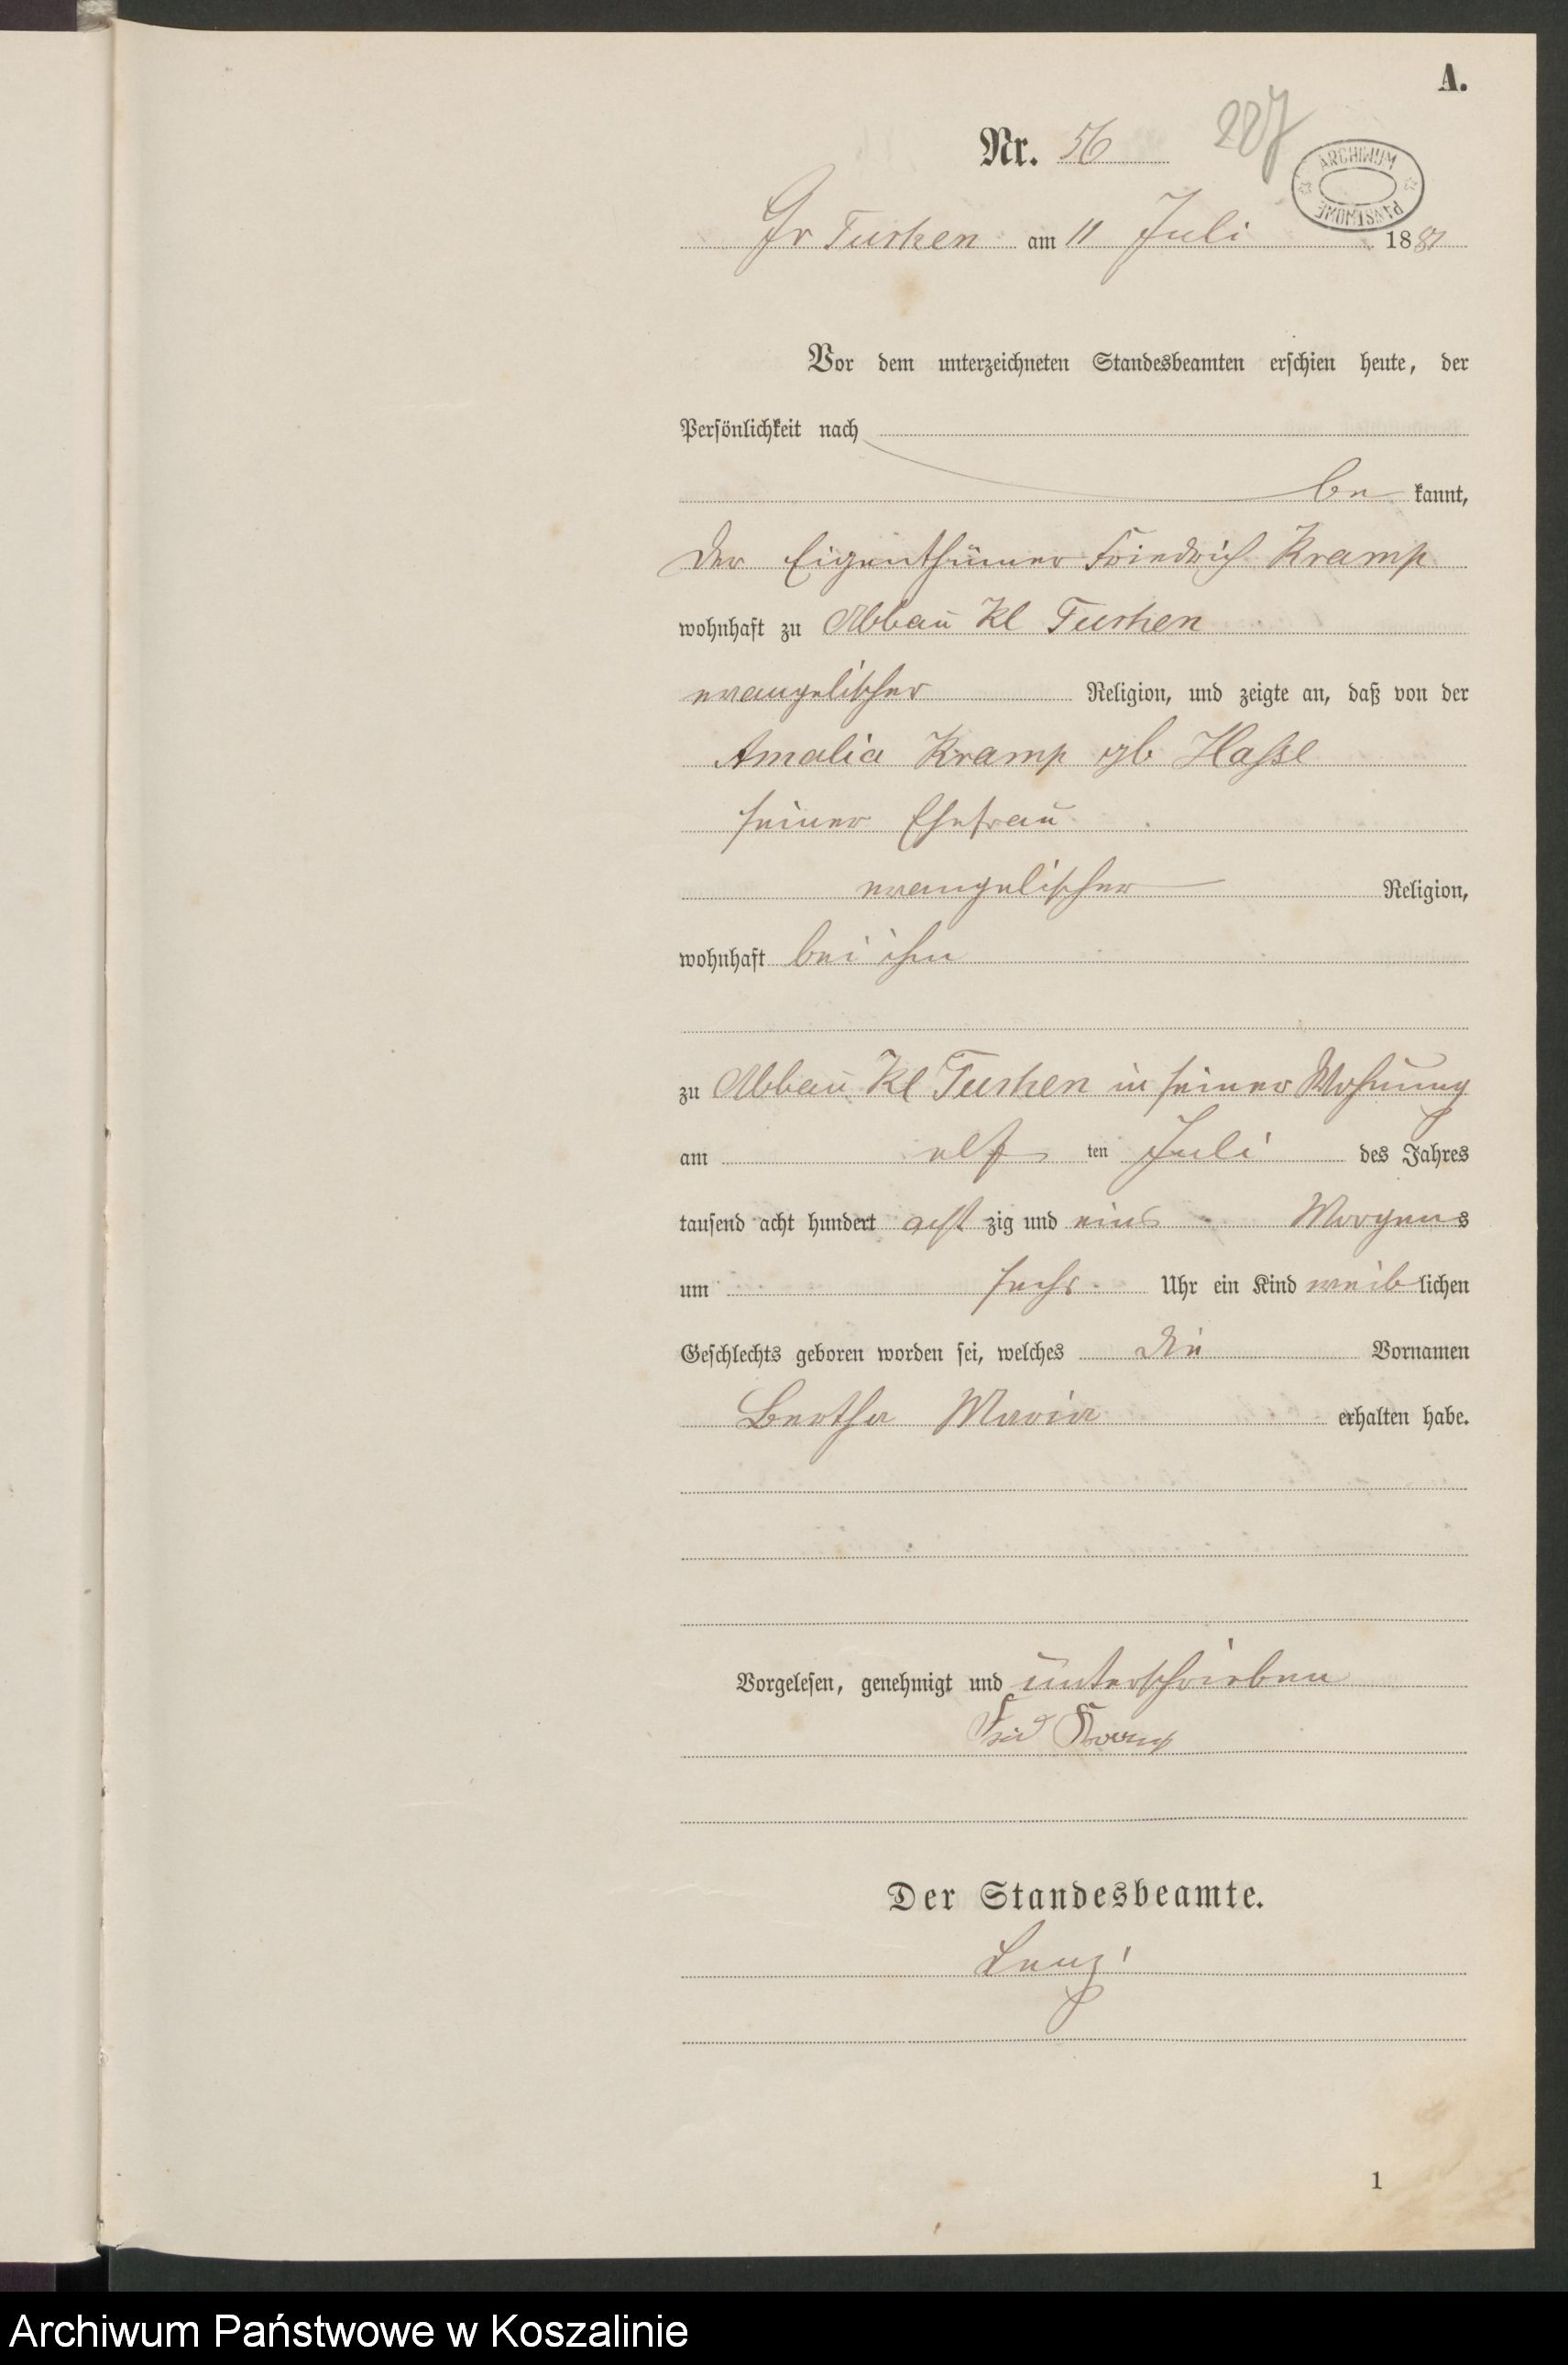 A.
Nr. 56
227
ARCHIWUM PAŃSTWOWE
Gr Tuchen am 11 Juli 1881
Vor dem unterzeichneten Standesbeamten erschien heute, der
Persönlichkeit nach
be kannt,
der Eigenthümer Friedrich Kramp
wohnhaft zu Abbau Kl Tuchen
evangelischer Religion, und zeigte an, daß von der
Amalia Kramp gb Haßse
seiner Ehefrau
evangelischer Religion,
wohnhaft bei ihm
zu Abbau Kl Tuchen in seiner Wohnung
am elf ten Juli des Jahres
tausend acht hundert acht zig und eins Morgens
um sechs Uhr ein Kind weiblichen
Geschlechts geboren worden sei, welches die Vornamen
Bertha Maria erhalten habe.
Vorgelesen, genehmigt und unterschrieben
Frid Kramp
Der Standesbeamte.
1
Archiwum Państwowe w Koszalinie